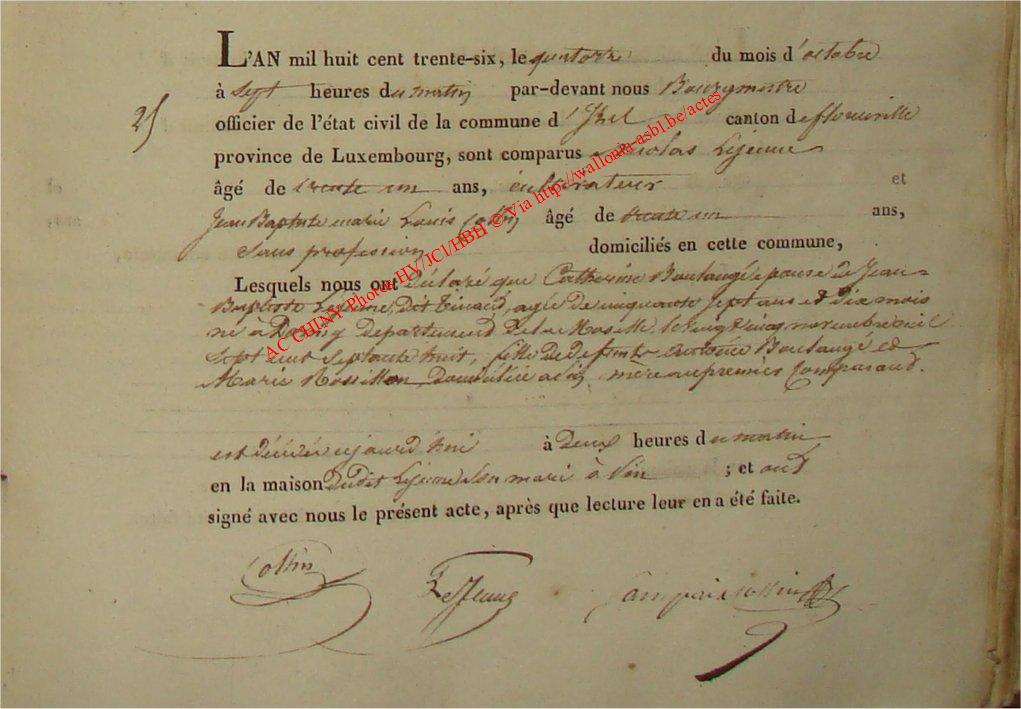 L'AN mil huit cent trente-six, le quatorze du mois d'octobre
25
à Sept heures du matin par-devant nous Bourgmestre
officier de l'état civil de la commune d'Izel canton de florenville
province de Luxembourg, sont comparus Nicolas Lejeune
âgé de trente un ans, cultivateur et
Jean Baptiste marie Louis Collin âgé de trente un ans,
Sans profession domiciliés en cette commune,
Lesquels nous ont déclaré que Catherine Boulangé épouse de Jean
Baptiste Lejeune, dit agée de cinquante sept ans et dix mois
né a departement de la Moselle, le cinq novembre mil
Sept cent Septante huit, fille de defunts Boulangé et
Marie Rossillon, domiciliée a mère au premier Comparant.
est décédée à deux heures du matin
en la maison dudit Lejeune Son mari à ; et ont
signé avec nous le présent acte, après que lecture leur en a été faite.
Collin LeJeune Collin
AC CHINY Photos HV/JCl/HBH © Via http://wallonia-asbl.be/actes